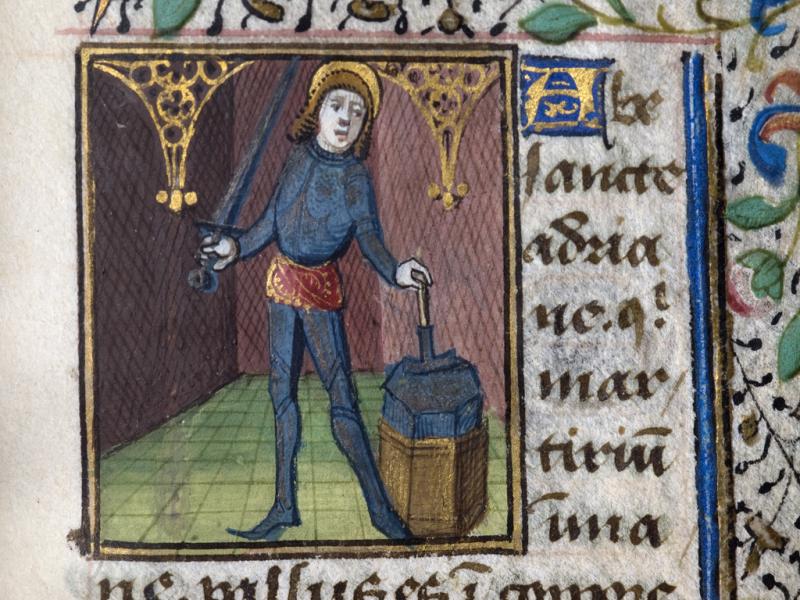 Ave
sancte
adria
ne. q'
mar
tiriū
una
ne passus es ī